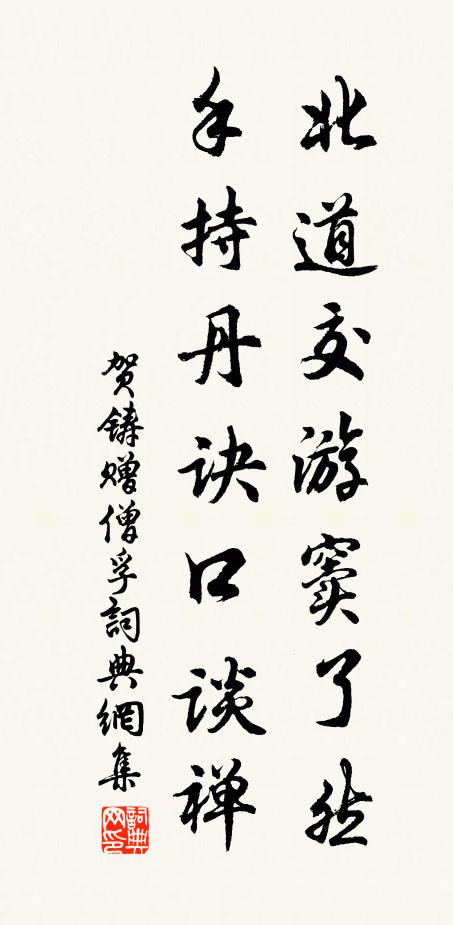 北道交游窦了然
手持丹诀口谈禅
贺铸赠僧孚詞典網集
詞典
网印